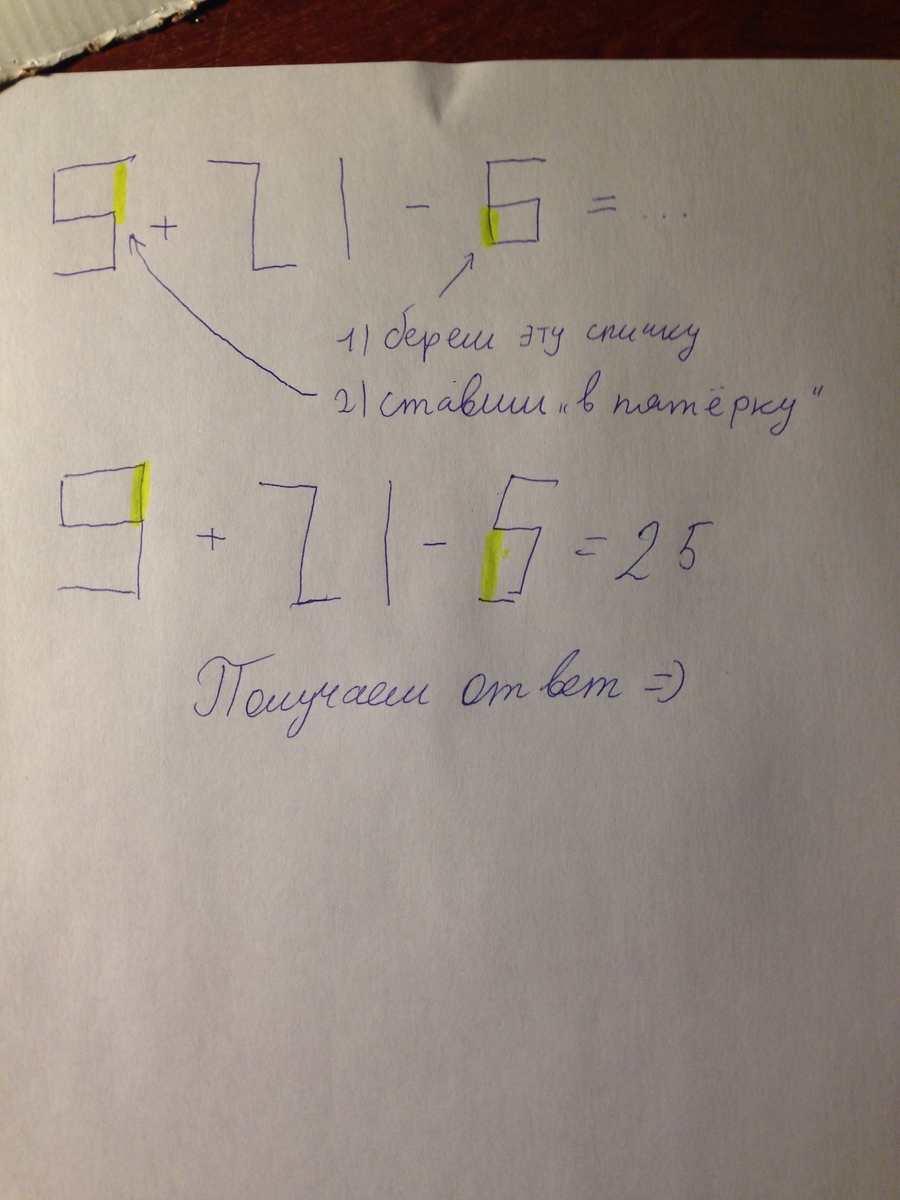 5 + 21 - 6 = ...
1) берем эту спичку
2) ставим „в пятёрку"
9 + 21 - 5 = 25
Получаем ответ =)